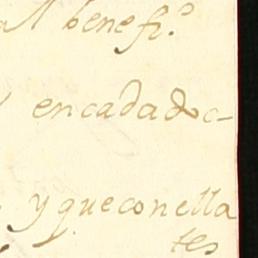 al benefi.º
en cada doc-
y que con ella
tes